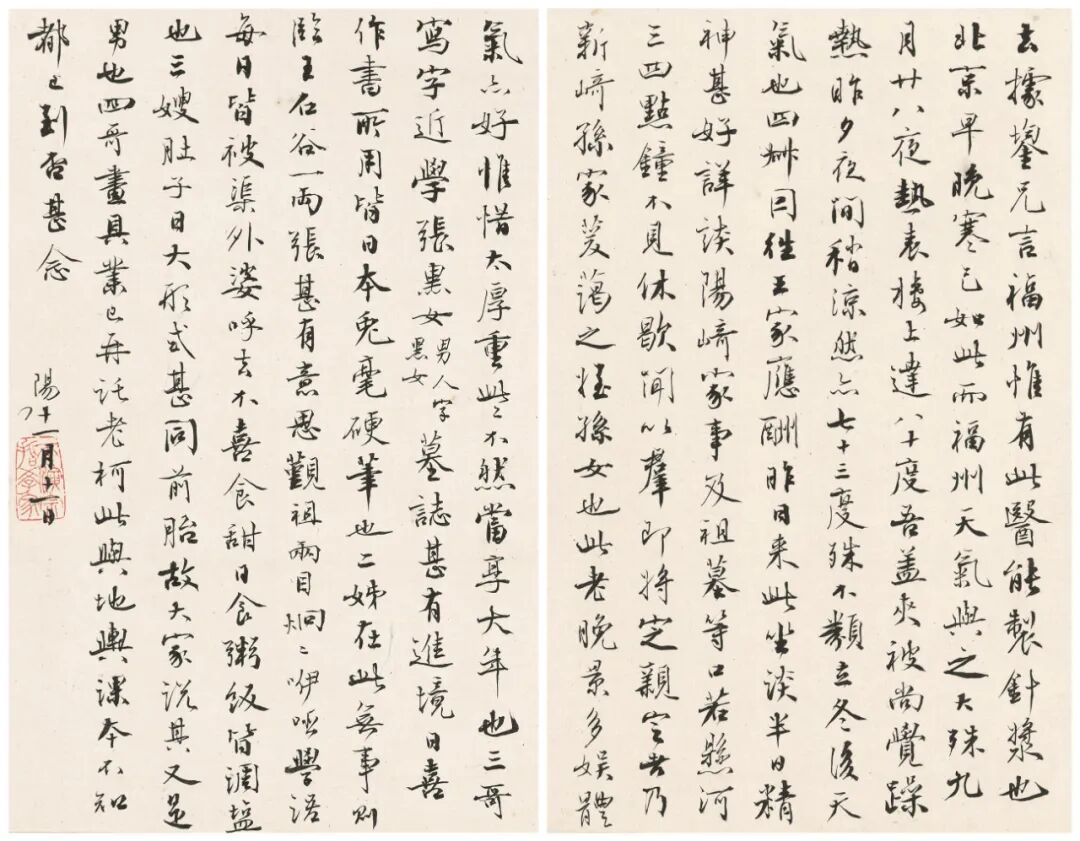 去據鋆兄言福州惟有此醫能製針漿也
北京早晚寒已如此而福州天氣與之大殊九
月廿八夜熱表樓上達八十度吾蓋夾被尚覺躁
熱昨夕夜間稍涼然亦七十三度殊不類立冬後天
氣也四姊同往王家應酬昨日来此坐談半日精
神甚好詳談陽崎家事及祖墓等口若懸河
三四點鐘不見休歇聞以羣即將定親定者乃
新崎孫家菱藹之姪孫女也此老晚景多娛體
氣亦好惟惜太厚重些不然當享大年也三哥
寫字近學張黑女男人字黑女墓誌甚有進境日喜
作書所用皆日本兔毫硬筆也二姊在此無事則
臨王石谷一兩張甚有意思觀祖兩目烱々咿啞學語
每日皆被渠外婆呼去不喜食甜日食粥飯皆調鹽
也三嫂肚子日大形式甚同前胎故大家説其又是
男也四哥畫具業已再託老柯此與地輿課本不知
都已到否甚念
陽十一月十一日